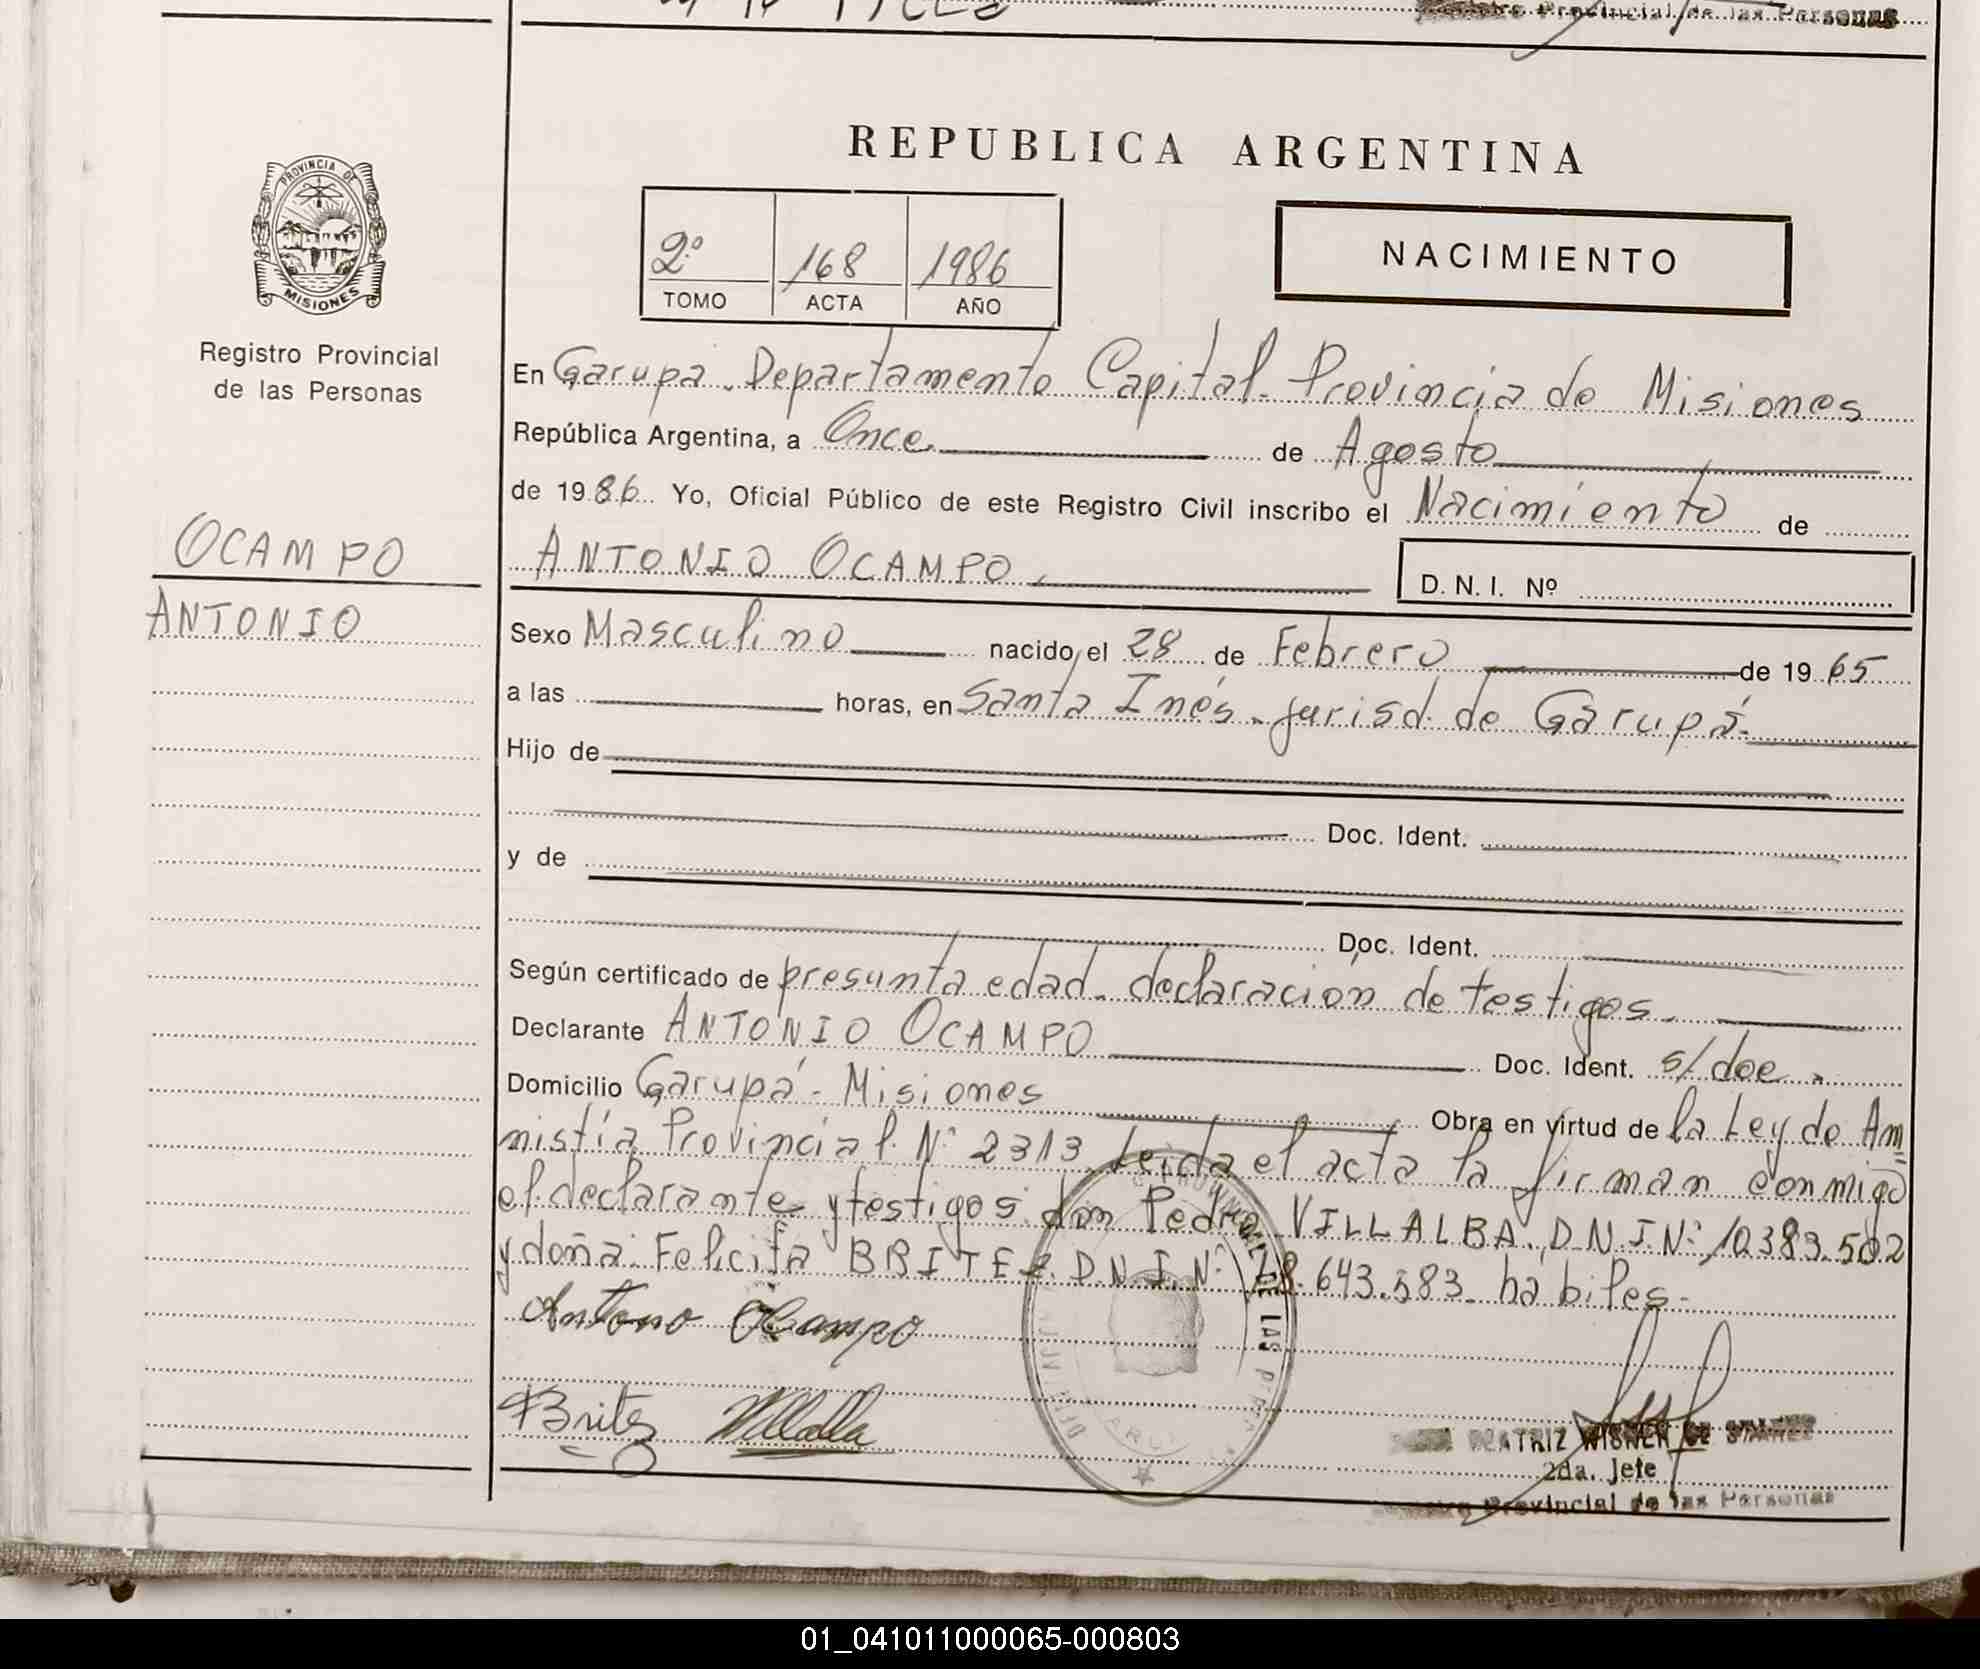 Provincial de las Personas
REPUBLICA ARGENTINA
PROVINCIA DE
MISIONES
2º 168 1986
TOMO ACTA AÑO
NACIMIENTO
Registro Provincial
de las Personas
En Garupá. Departamento Capital. Provincia de Misiones
República Argentina, a Once de Agosto
de 1986 Yo, Oficial Público de este Registro Civil inscribo el Nacimiento de
OCAMPO
ANTONIO
ANTONIO OCAMPO. D.N.I. Nº
Sexo Masculino nacido el 28 de Febrero de 1965
a las horas, en Santa Inés. jurisd. de Garupá.
Hijo de
Doc. Ident.
y de
Doc. Ident.
Según certificado de presunta edad. declaración de testigos.
Declarante ANTONIO OCAMPO Doc. Ident. s/doc.
Domicilio Garupá - Misiones Obra en virtud de la Ley de Am
nistía Provincial Nº 2313. Leída el acta la firman conmigo
el declarante y testigos: don Pedro VILLALBA. D.N.I.Nº 10.383.502
y doña Felicita BRITEZ. D.N.I. Nº 18.643.583. hábiles.-
Antono Ocampo
Britez Villalba
BEATRIZ WISNER DE
2da. Jefe
Provincial de las Personas
01_041011000065-000803